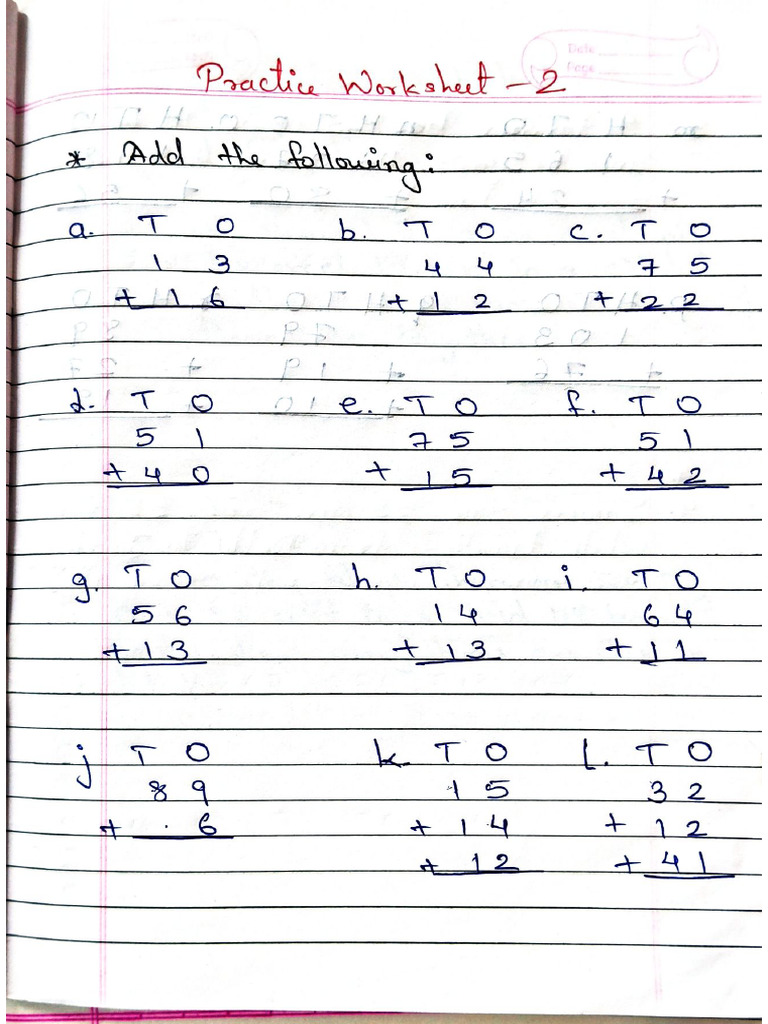 Date
Page
Practice Worksheet - 2
* Add the following:
a. T O b. T O c. T O
1 3 4 4 7 5
+ 1 6 + 1 2 + 2 2
d. T O e. T O f. T O
5 1 7 5 5 1
+ 4 0 + 1 5 + 4 2
g. T O h. T O i. T O
5 6 1 4 6 4
+ 1 3 + 1 3 + 1 1
j T O k. T O l. T O
8 9 1 5 3 2
+ . 6 + 1 4 + 1 2
+ 1 2 + 4 1